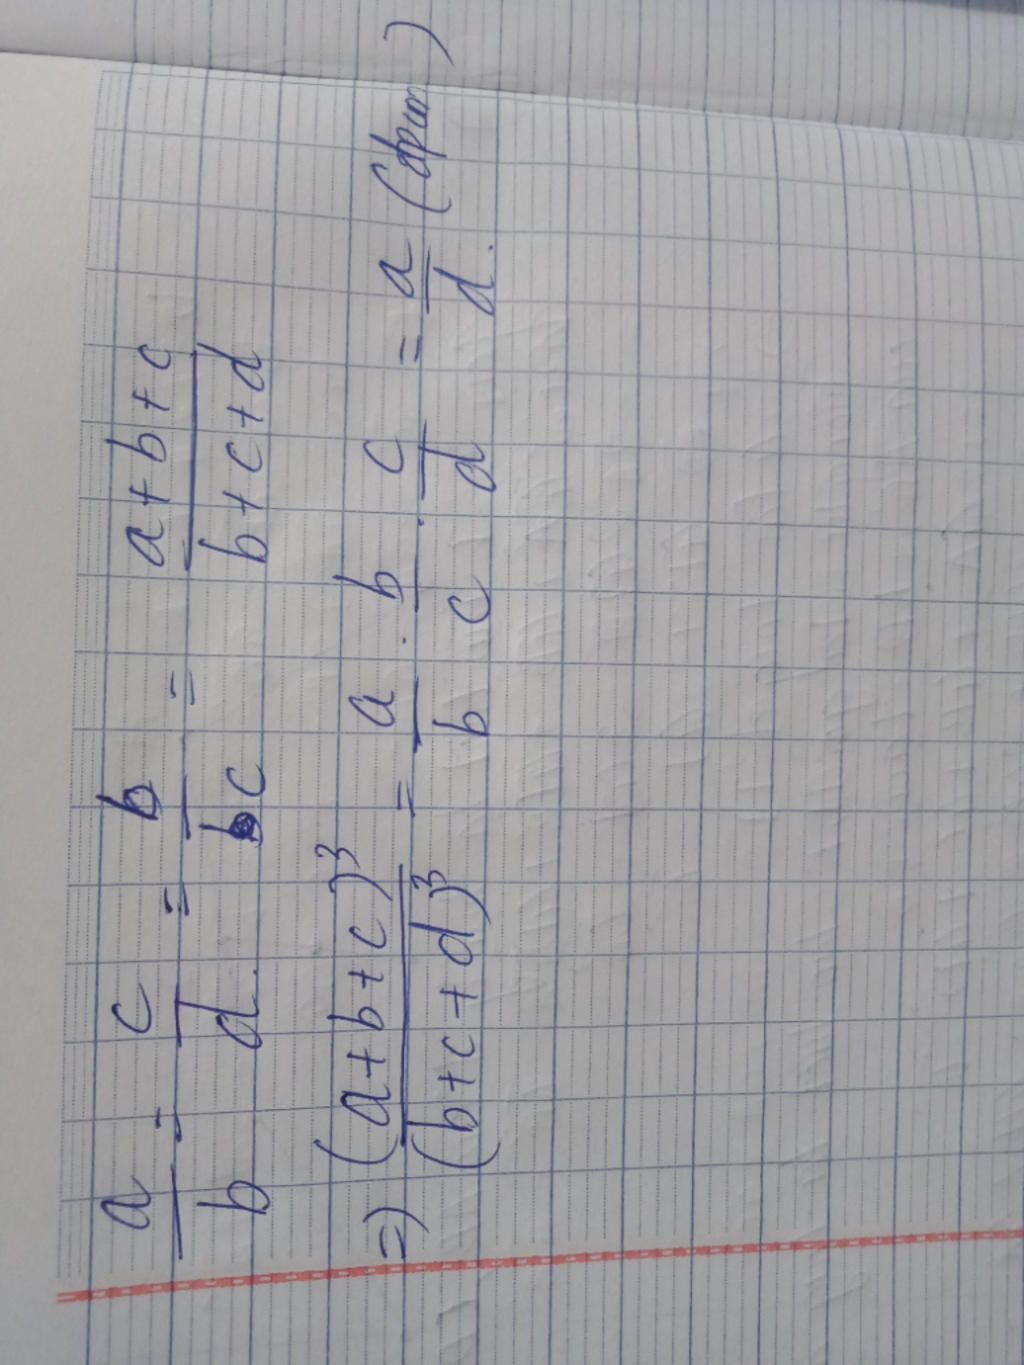 a/b = c/d = b/c = a+b+c/b+c+d
=) (a+b+c)³/(b+c+d)³ = a/b . b/c . c/d = a/d. (đpcm)